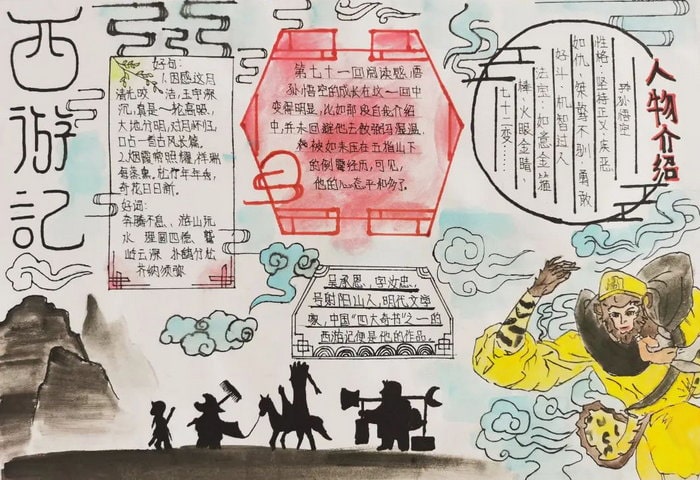 西游记
好句:
1.因感这月
清光皎洁,玉宇深
沉,真是一轮高照,
大地分明,对月怀归,
口占一首古风长篇。
2.烟霞常照耀,祥瑞
每蒸熏,松竹年年秀,
奇花日日新。
好词:
奔腾不息、游山玩
水
第七十一回阅读感悟
孙悟空的成长在这一回中
变得明显,比如那段自我介绍
中,并未回避他去
被如来压在五指山下
的倒霉经历,可见,
他的心态平和多了。
吴承恩,字汝忠,
号射阳山人,明代文学
家,中国“四大奇书”之一的
西游记便是他的作品。
人物介绍
孙悟空
性格:坚持正义、疾恶
如仇、桀骜不驯、勇敢
好斗、机智过人
法宝:如意金箍
棒、火眼金睛、
七十二变……